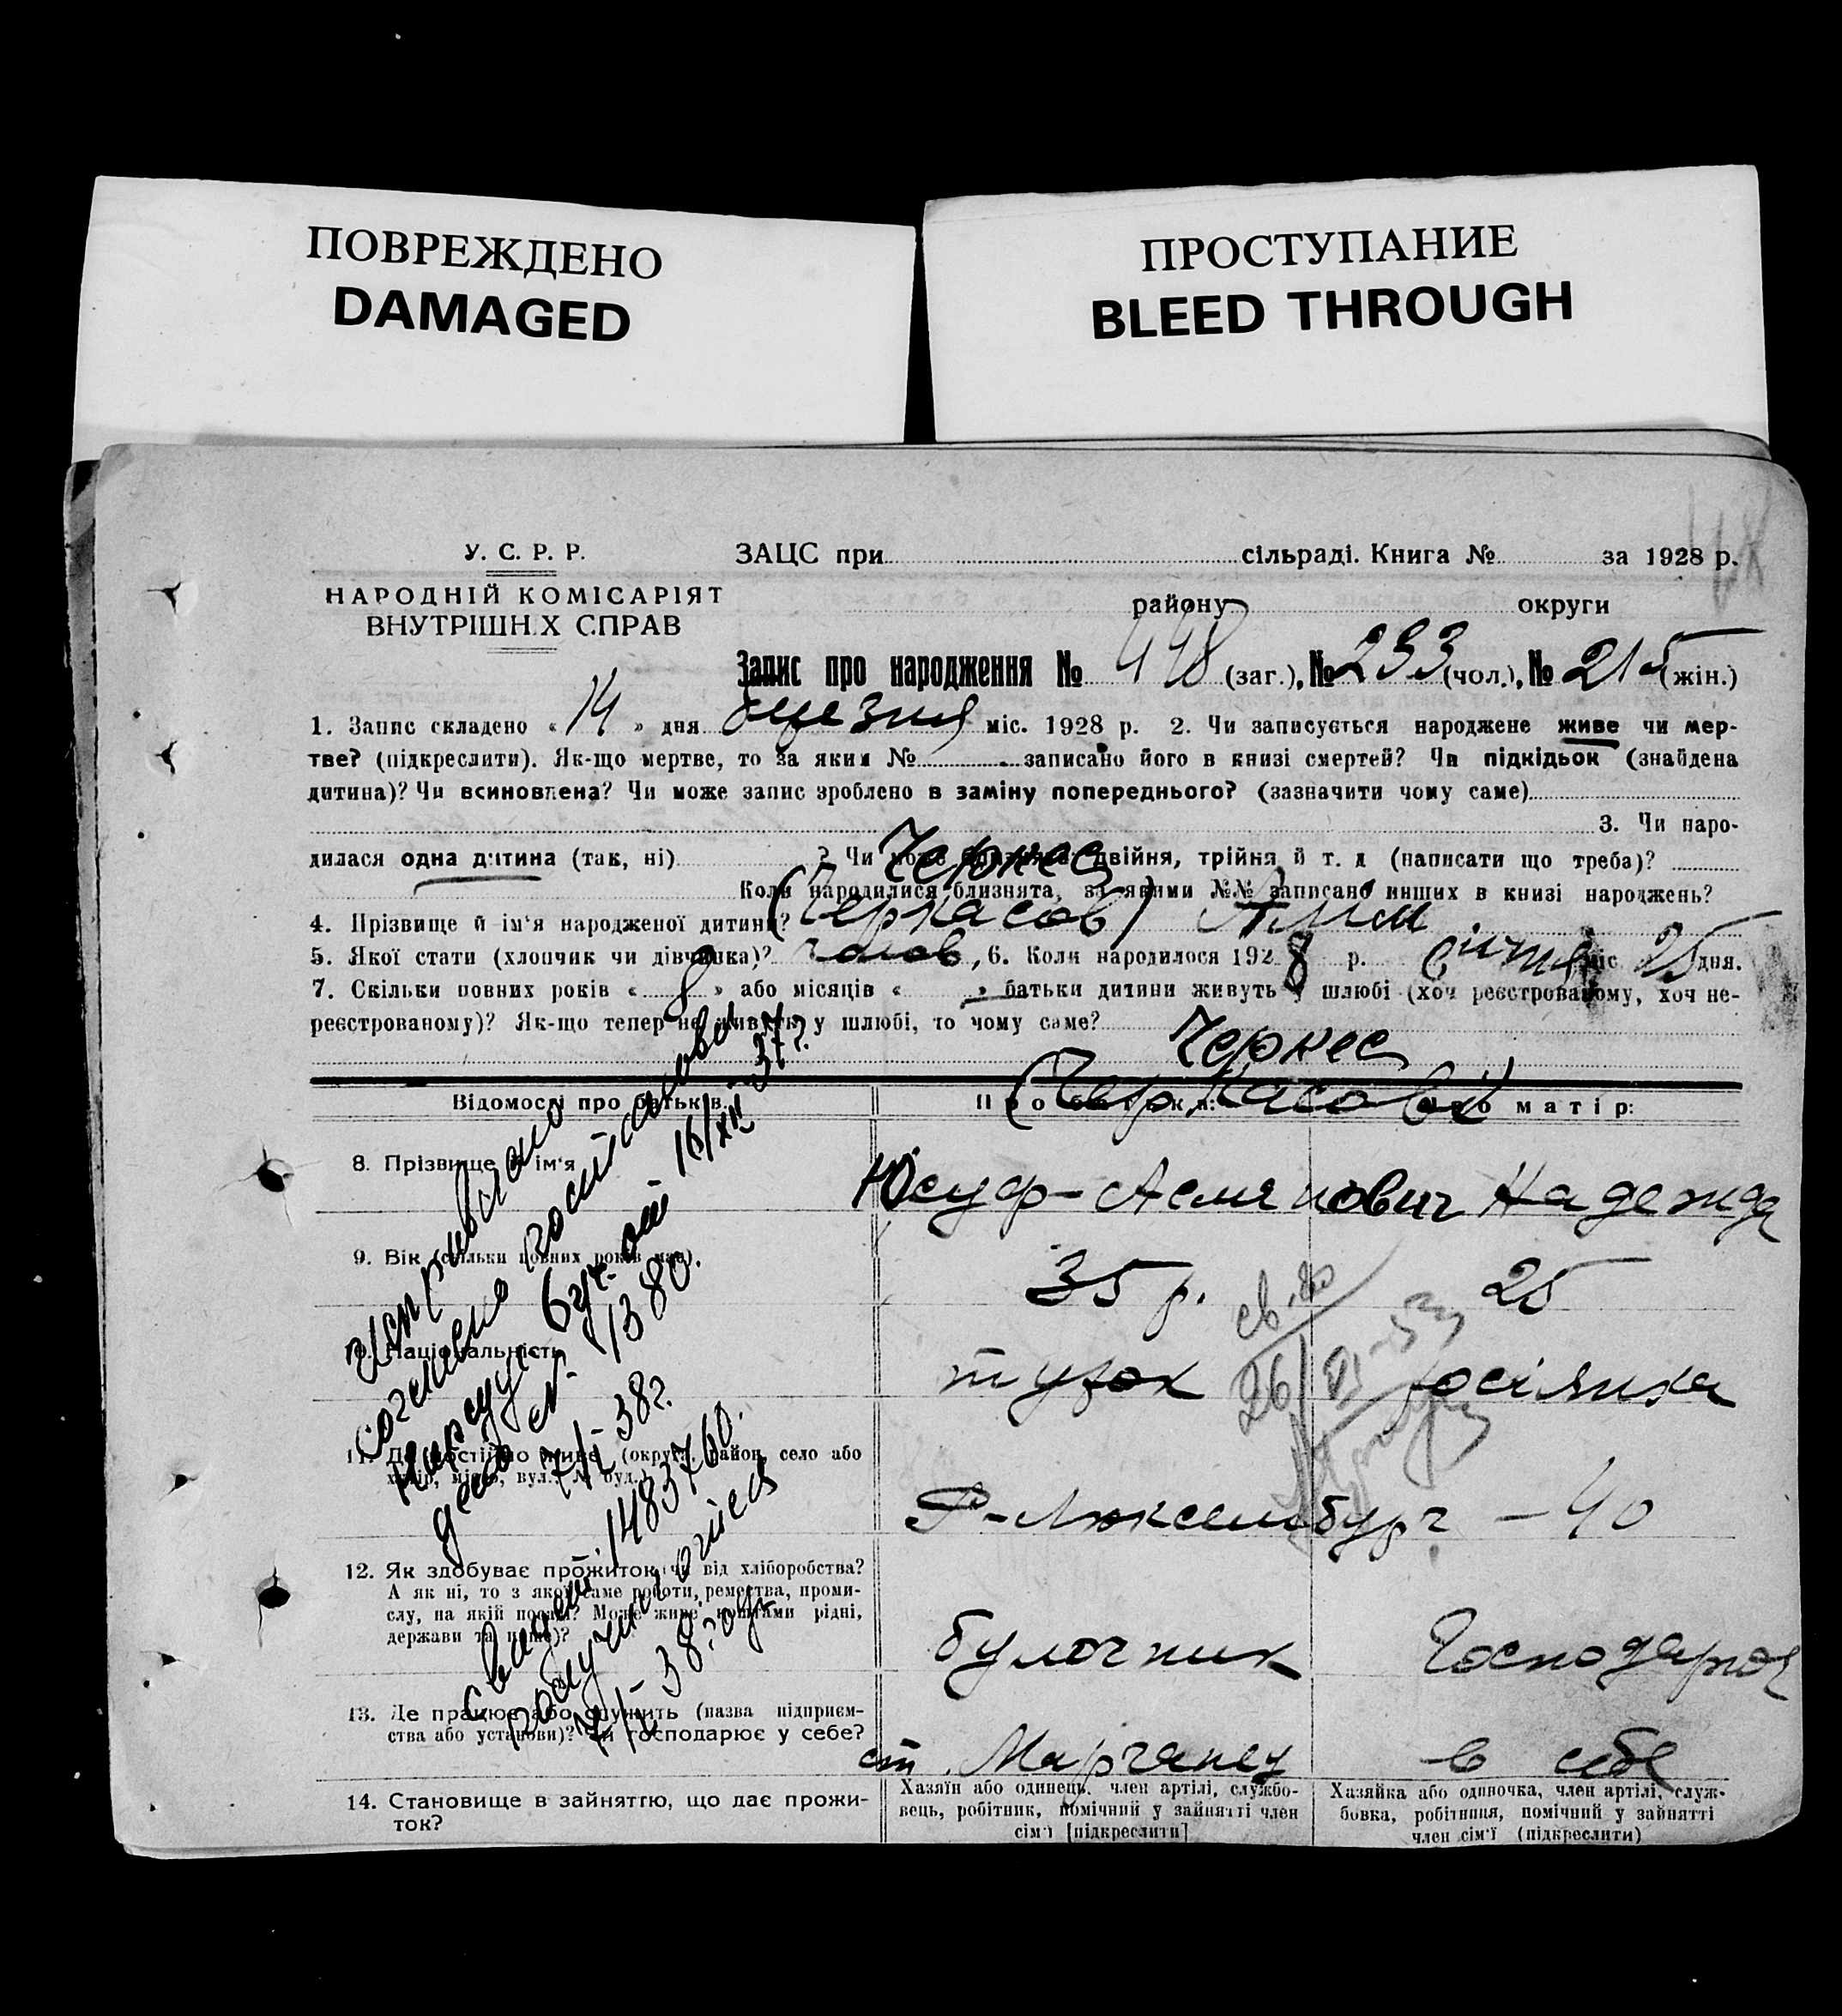 ПОВРЕЖДЕНО
DAMAGED
ПРОСТУПАНИЕ
BLEED THROUGH
У. С. Р. Р.
НАРОДНІЙ КОМІСАРІЯТ
ВНУТРІШНІХ СПРАВ
ЗАЦС при сільраді. Книга № за 1928 р.
району округи
Запис про народження № 448 (заг.), № 233 (чол.), № 215 (жін.)
1. Запис складено «14» дня березня міс. 1928 р. 2. Чи записується народжене живе чи мер-
тве? (підкреслити). Як-що мертве, то за яким № записано його в книзі смертей? Чи підкідьок (знайдена
дитина)? Чи всиновлена? Чи може запис зроблено в заміну попереднього? (зазначити чому саме)
3. Чи наро-
дилася одна дитина (так, ні) ? Чи може близнята двійня, трійня й т. д (написати що треба)?
Черкес
Коли народилися близнята, за якими №№ записано инших в книзі народжень?
4. Прізвище й ім'я народженої дитини? (Черкасов) Алим
5. Якої стати (хлопчик чи дівчинка)? чолов, 6. Коли народилося 1928 р. січня міс 25 дня.
7. Скільки повних років «8» або місяців « » батьки дитини живуть у шлюбі (хоч реєстрованому, хоч не-
реєстрованому)? Як-що тепер не живуть у шлюбі, то чому саме?
Черкес
(Черкасови)
Відомості про батьків. Про батька: Про матір:
8. Прізвище й ім'я
Юсуф-Асманович Надежда
9. Вік (скільки повних років має).
35 р. 25
10. Національність
турок росіянка
11. Де постійно живе (округа, район, село або
хутір, місто, вул., № буд.)
Р-Люксембург - 40
12. Як здобуває прожиток: чи від хліборобства?
А як ні, то з якої саме роботи, ремества, проми-
слу, на якій посаді? Може живе коштами рідні,
держави та инше)?
булочник Господарює
13. Де працює або служить (назва підприєм-
ства або установи)? Чи господарює у себе?
ст. Марганец в себе
14. Становище в зайняттю, що дає прожи-
ток?
Хазяїн або одинець, член артілі, службо-
вець, робітник, помічний у зайнятті член
сім'ї [підкреслити]
Хазяйка або одиночка, член артілі, служ-
бовка, робітниця, помічний у зайнятті
член сім'ї (підкреслити)
исправлено
согласно постановл.
Нарсуда 6 уч. от 16/XII 37г.
дело № 1380.
7/I 38г.
свидет. 1483760.
7/I 38г.